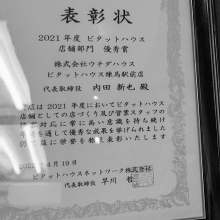 表彰状
2021年度 ピタットハウス
店舗部門 優秀賞
株式会社ウチダハウス
ピタットハウス練馬駅前店
代表取締役 内田 新也 殿
店は2021年度においてピタットハウス
店舗としての店づくり及び営業スタッフの
対応に常に高い意識を持ち続け
を通して優秀な成果を挙げられました
に栄誉を称え表彰いたします
年4月19日
ピタットハウスネットワーク株式会社
代表取締役 早川